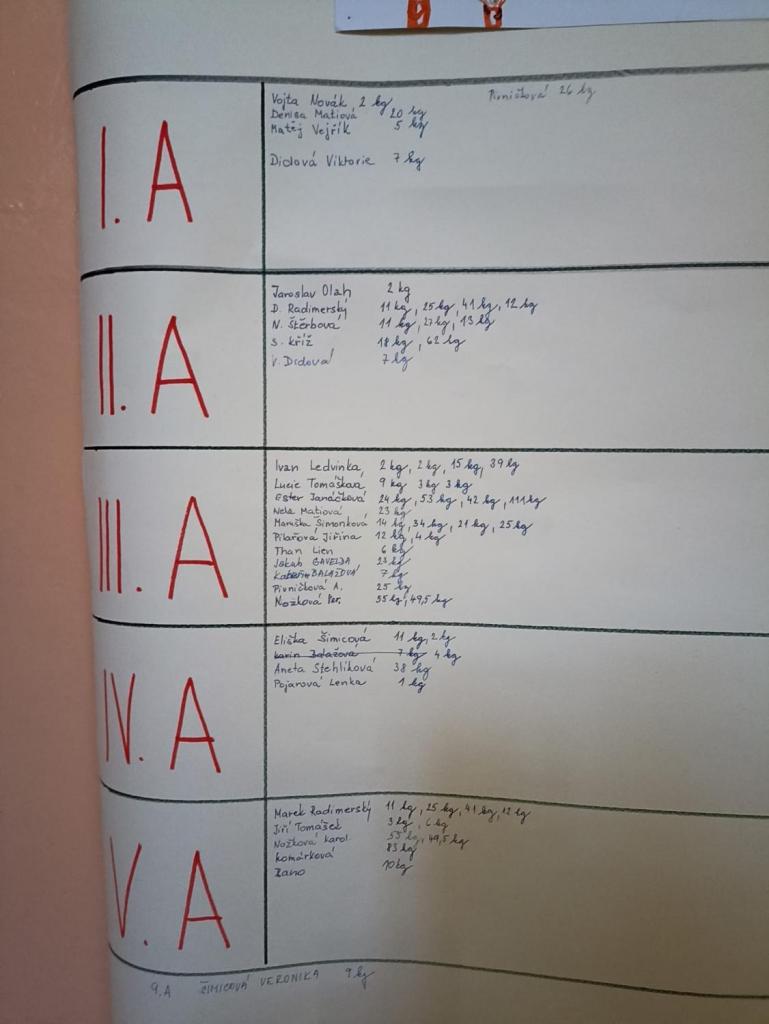 I. A
Vojta Novák 2 kg
Pivničková 26 kg
Denisa Matiová 20 kg
Matěj Vejřík 5 kg
Didová Viktorie 7 kg
II. A
Jaroslav Olah 2 kg
D. Radimerský 11 kg, 25 kg, 41 kg, 12 kg
N. Štěrbová 11 kg, 27 kg, 13 kg
S. Kříž 18 kg, 62 kg
V. Didová 7 kg
III. A
Ivan Ledvinka, 2 kg, 2 kg, 15 kg, 39 kg
Lucie Tomáškova 9 kg 3 kg 3 kg
Ester Janáčková 24 kg, 53 kg, 42 kg, 111 kg
Nela Matiová 23 kg
Maruška Šimonková 14 kg, 34 kg, 21 kg, 25 kg
Pilařová Jiřina 12 kg, 4 kg
Than Lien 6 kg
Jakub GAVELDA 23 kg
BALAŽOVÁ 7 kg
Pivničková A. 25 kg
Nožková Per. 55 kg, 49,5 kg
IV. A
Eliška Šimicová 11 kg, 2 kg
Karin Balažová 7 kg 4 kg
Aneta Stehlíková 38 kg
Pojarová Lenka 1 kg
V. A
Marek Radimerský 11 kg, 25 kg, 41 kg, 12 kg
Jiří Tomášek 3 kg, 6 kg
Nožková Karol. 55 kg, 49,5 kg
Komárková 83 kg
Bano 10 kg
9. A ŠIMICOVÁ VERONIKA 9 kg